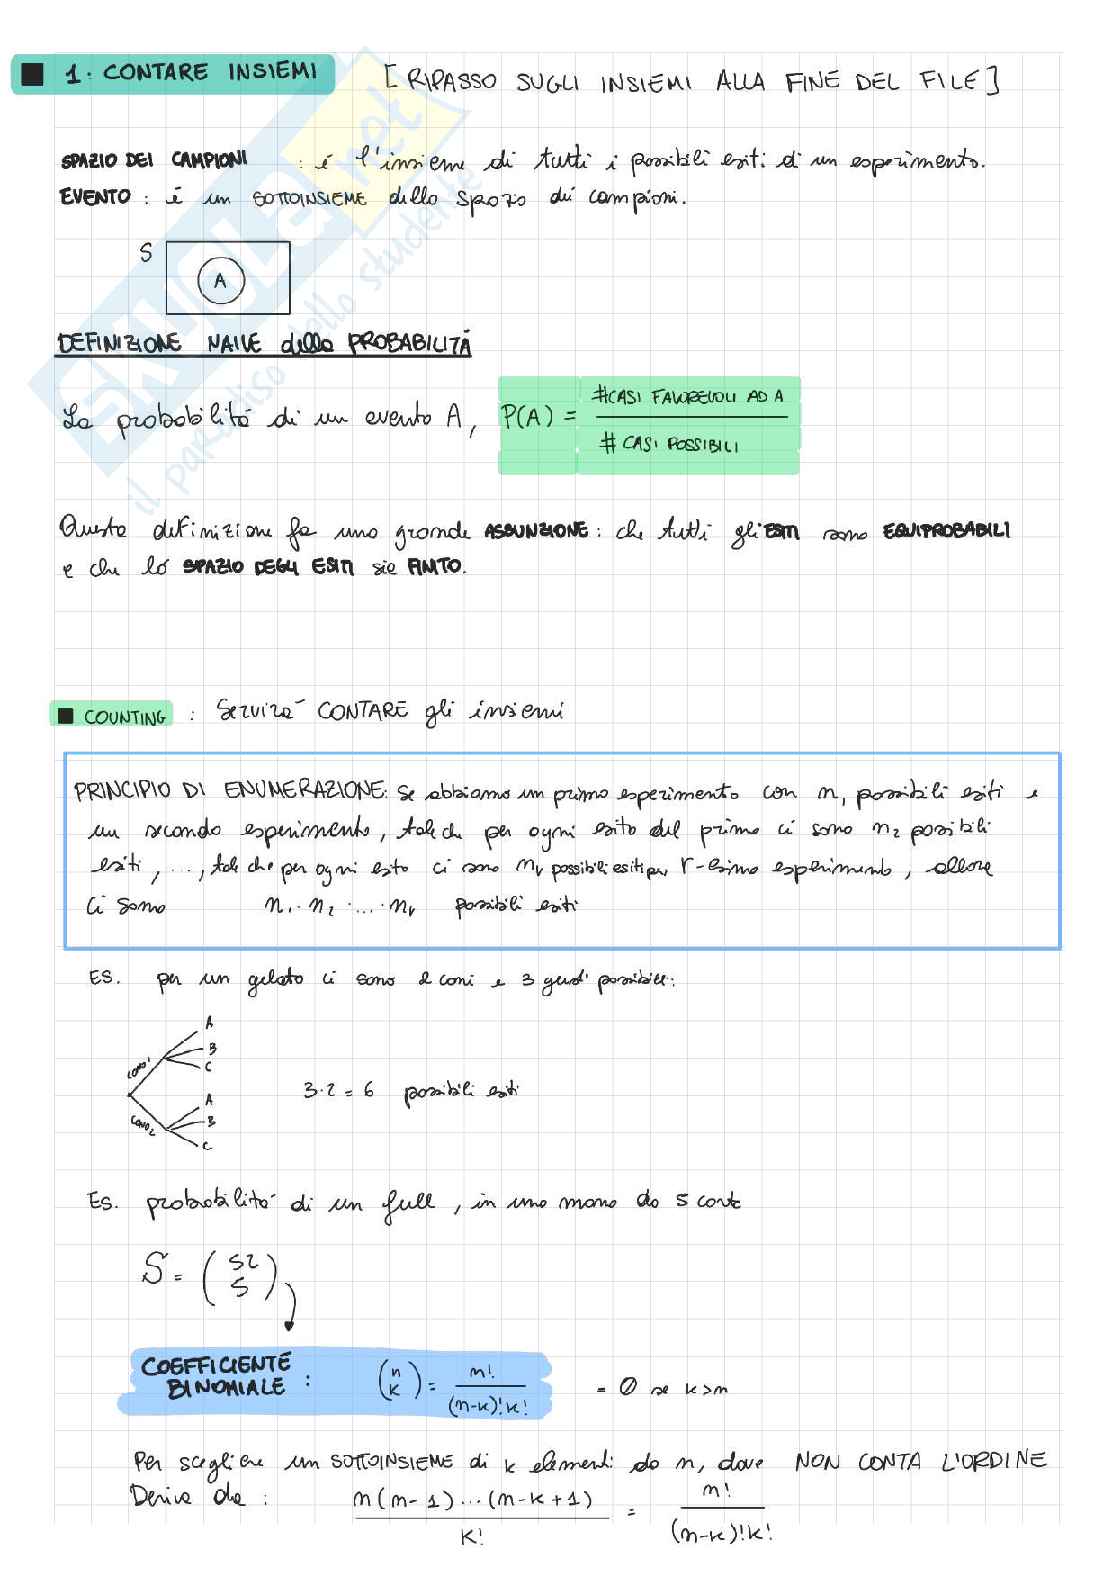 1. CONTARE INSIEMI [RIPASSO SUGLI INSIEMI ALLA FINE DEL FILE]
SPAZIO DEI CAMPIONI : é l'insieme di tutti i possibili esiti di un esperimento.
EVENTO : é un SOTTOINSIEME dello spazio dei campioni.
S
A
DEFINIZIONE NAIVE della PROBABILITÁ
La probabilitá di un evento A, P(A) = #CASI FAVOREVOLI AD A / # CASI POSSIBILI
Questa definizione fa una grande ASSUNZIONE : che tutti gli ESITI sono EQUIPROBABILI
e che lo SPAZIO DEGLI ESITI sia FINITO.
COUNTING : Servirá CONTARE gli insiemi
PRINCIPIO DI ENUMERAZIONE: Se abbiamo un primo esperimento con n₁ possibili esiti e
un secondo esperimento, tale che per ogni esito del primo ci sono n₂ possibili
esiti, ..., tale che per ogni esito ci sono nᵣ possibili esiti per r-esimo esperimento, allora
ci sono n₁ · n₂ · ... · nᵣ possibili esiti
ES. per un gelato ci sono 2 coni e 3 gusti possibili:
A
B
CONO 1 C
3·2 = 6 possibili esiti
A
CONO 2 B
C
ES. probabilitá di un full, in una mano da 5 carte
S = (52 5)
COEFFICIENTE
BINOMIALE : (n k) = n! / (n-k)!k! = 0 se k>n
Per scegliere un SOTTOINSIEME di k elementi da n, dove NON CONTA L'ORDINE
Deriva da : n(n-1)...(n-k+1) / k! = n! / (n-k)!k!
SKUOLA.net
il paradiso dello studente